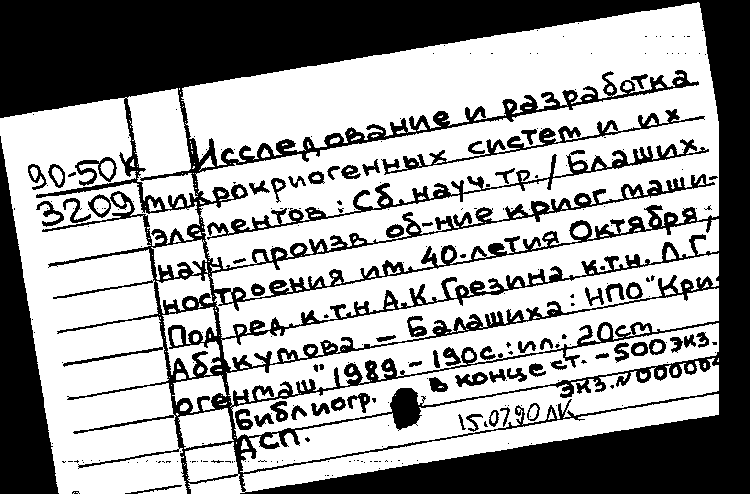 90-50К
3209
Исследование и разработка
микрокриогенных систем и их
элементов: Сб. науч. тр. / Блаших.
науч.-произв. об-ние криог. маши-
ностроения им. 40-летия Октября;
Под ред. к.т.н. А.К. Грезина, к.т.н. Л.Г.
Абакумова. – Балашиха: НПО "Кри-
огенмаш", 1989. – 190с.: ил.; 20см.
Библиогр. в конце ст. – 500 экз.
ДСП. экз. N 000004
15.07.90 ЛК